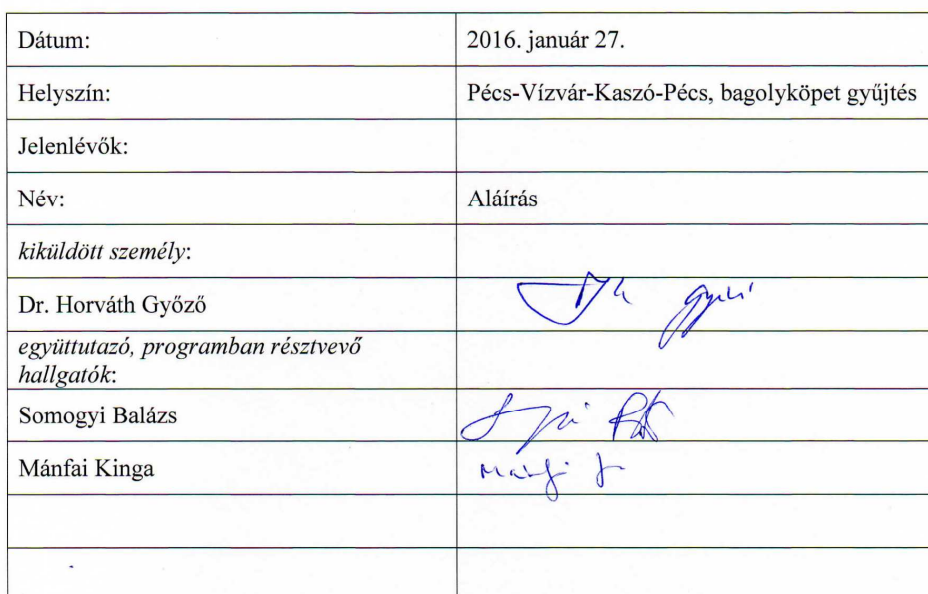 Dátum: 2016. január 27.
Helyszín: Pécs-Vízvár-Kaszó-Pécs, bagolyköpet gyűjtés
Jelenlévők:
Név: Aláírás
kiküldött személy:
Dr. Horváth Győző
együttutazó, programban résztvevő
hallgatók:
Somogyi Balázs
Mánfai Kinga